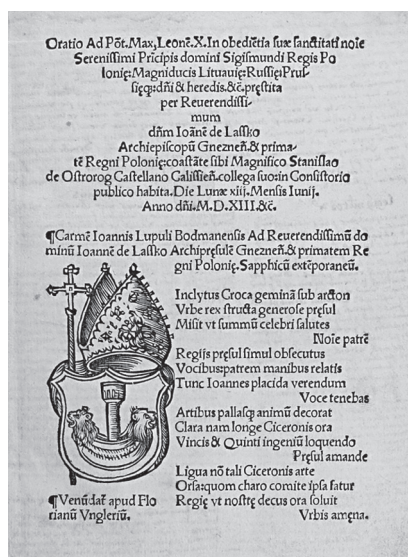 Oratio Ad Põt. Max, Leonẽ.X. In obediẽtia suæ sanctitati noĩe
Serenissimi Prĩcipis domini Sigismundi Regis Po
lonię: Magniducis Lituauię: Russię: Prus/
sięq: dñi & heredis. &c̃. pręstita
per Reuerendissi/
mum
dñm Ioãnẽ de Lassko
Archiepiscopũ Gnezneñ. & prima/
tẽ Regni Polonię: coastãte sibi Magnifico Stanislao
de Ostrorog Castellano Calissieñ. collega suo: in Consistorio
publico habita. Die Lunæ xiij. Mensis Iunij.
Anno dñi. M.D.XIII. &c̃.
¶Carmẽ Ioannis Lupuli Bodmanensis Ad Reuerendissimũ do
minũ Ioannẽ de Lassko Archipręsulẽ Gnezneñ. & primatem Re
gni Polonię. Sapphicũ extẽporaneũ.
Inclytus Croca geminã sub arcton
Vrbe rex structa generose pręsul
Misit vt summũ celebri salutes
Noĩe patrẽ
Regijs pręsul simul obsecutus
Vocibus: patrem manibus relatis
Tunc Ioannes placida verendum
Voce tenebas
Artibus pallasq; animũ decorat
Clara nam longe Ciceronis ora
Vincis & Quinti ingeniũ loquendo
Pręsul amande
Ligua nõ tali Ciceronis arte
Orsa: quom charo comite ipsa fatur
Regię vt nostrę decus ora soluit
Vrbis amęna.
¶Venũdat̃ apud Flo
rianũ Vngleriũ.